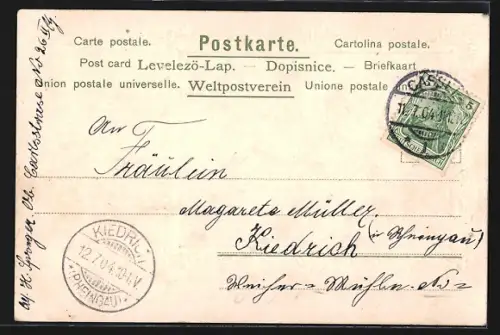 Carte postale. Postkarte. Cartolina postale.
Post card Levelezö-Lap. — Dopisnice. — Briefkaart
Union postale universelle. Weltpostverein Unione postale
CASSEL
11.7.04
An
Fräulein
Magarete Müller.
Kiedrich (in Rheingau)
Weiher-Mühle No
KIEDRICH
12.7.04
(RHEINGAU)